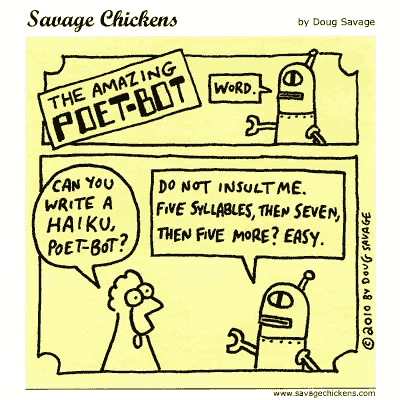 Savage Chickens
by Doug Savage
THE AMAZING
POET-BOT
WORD.
CAN YOU
WRITE A
HAIKU,
POET-BOT?
DO NOT INSULT ME.
FIVE SYLLABLES, THEN SEVEN,
THEN FIVE MORE? EASY.
© 2010 BY DOUG SAVAGE
www.savagechickens.com